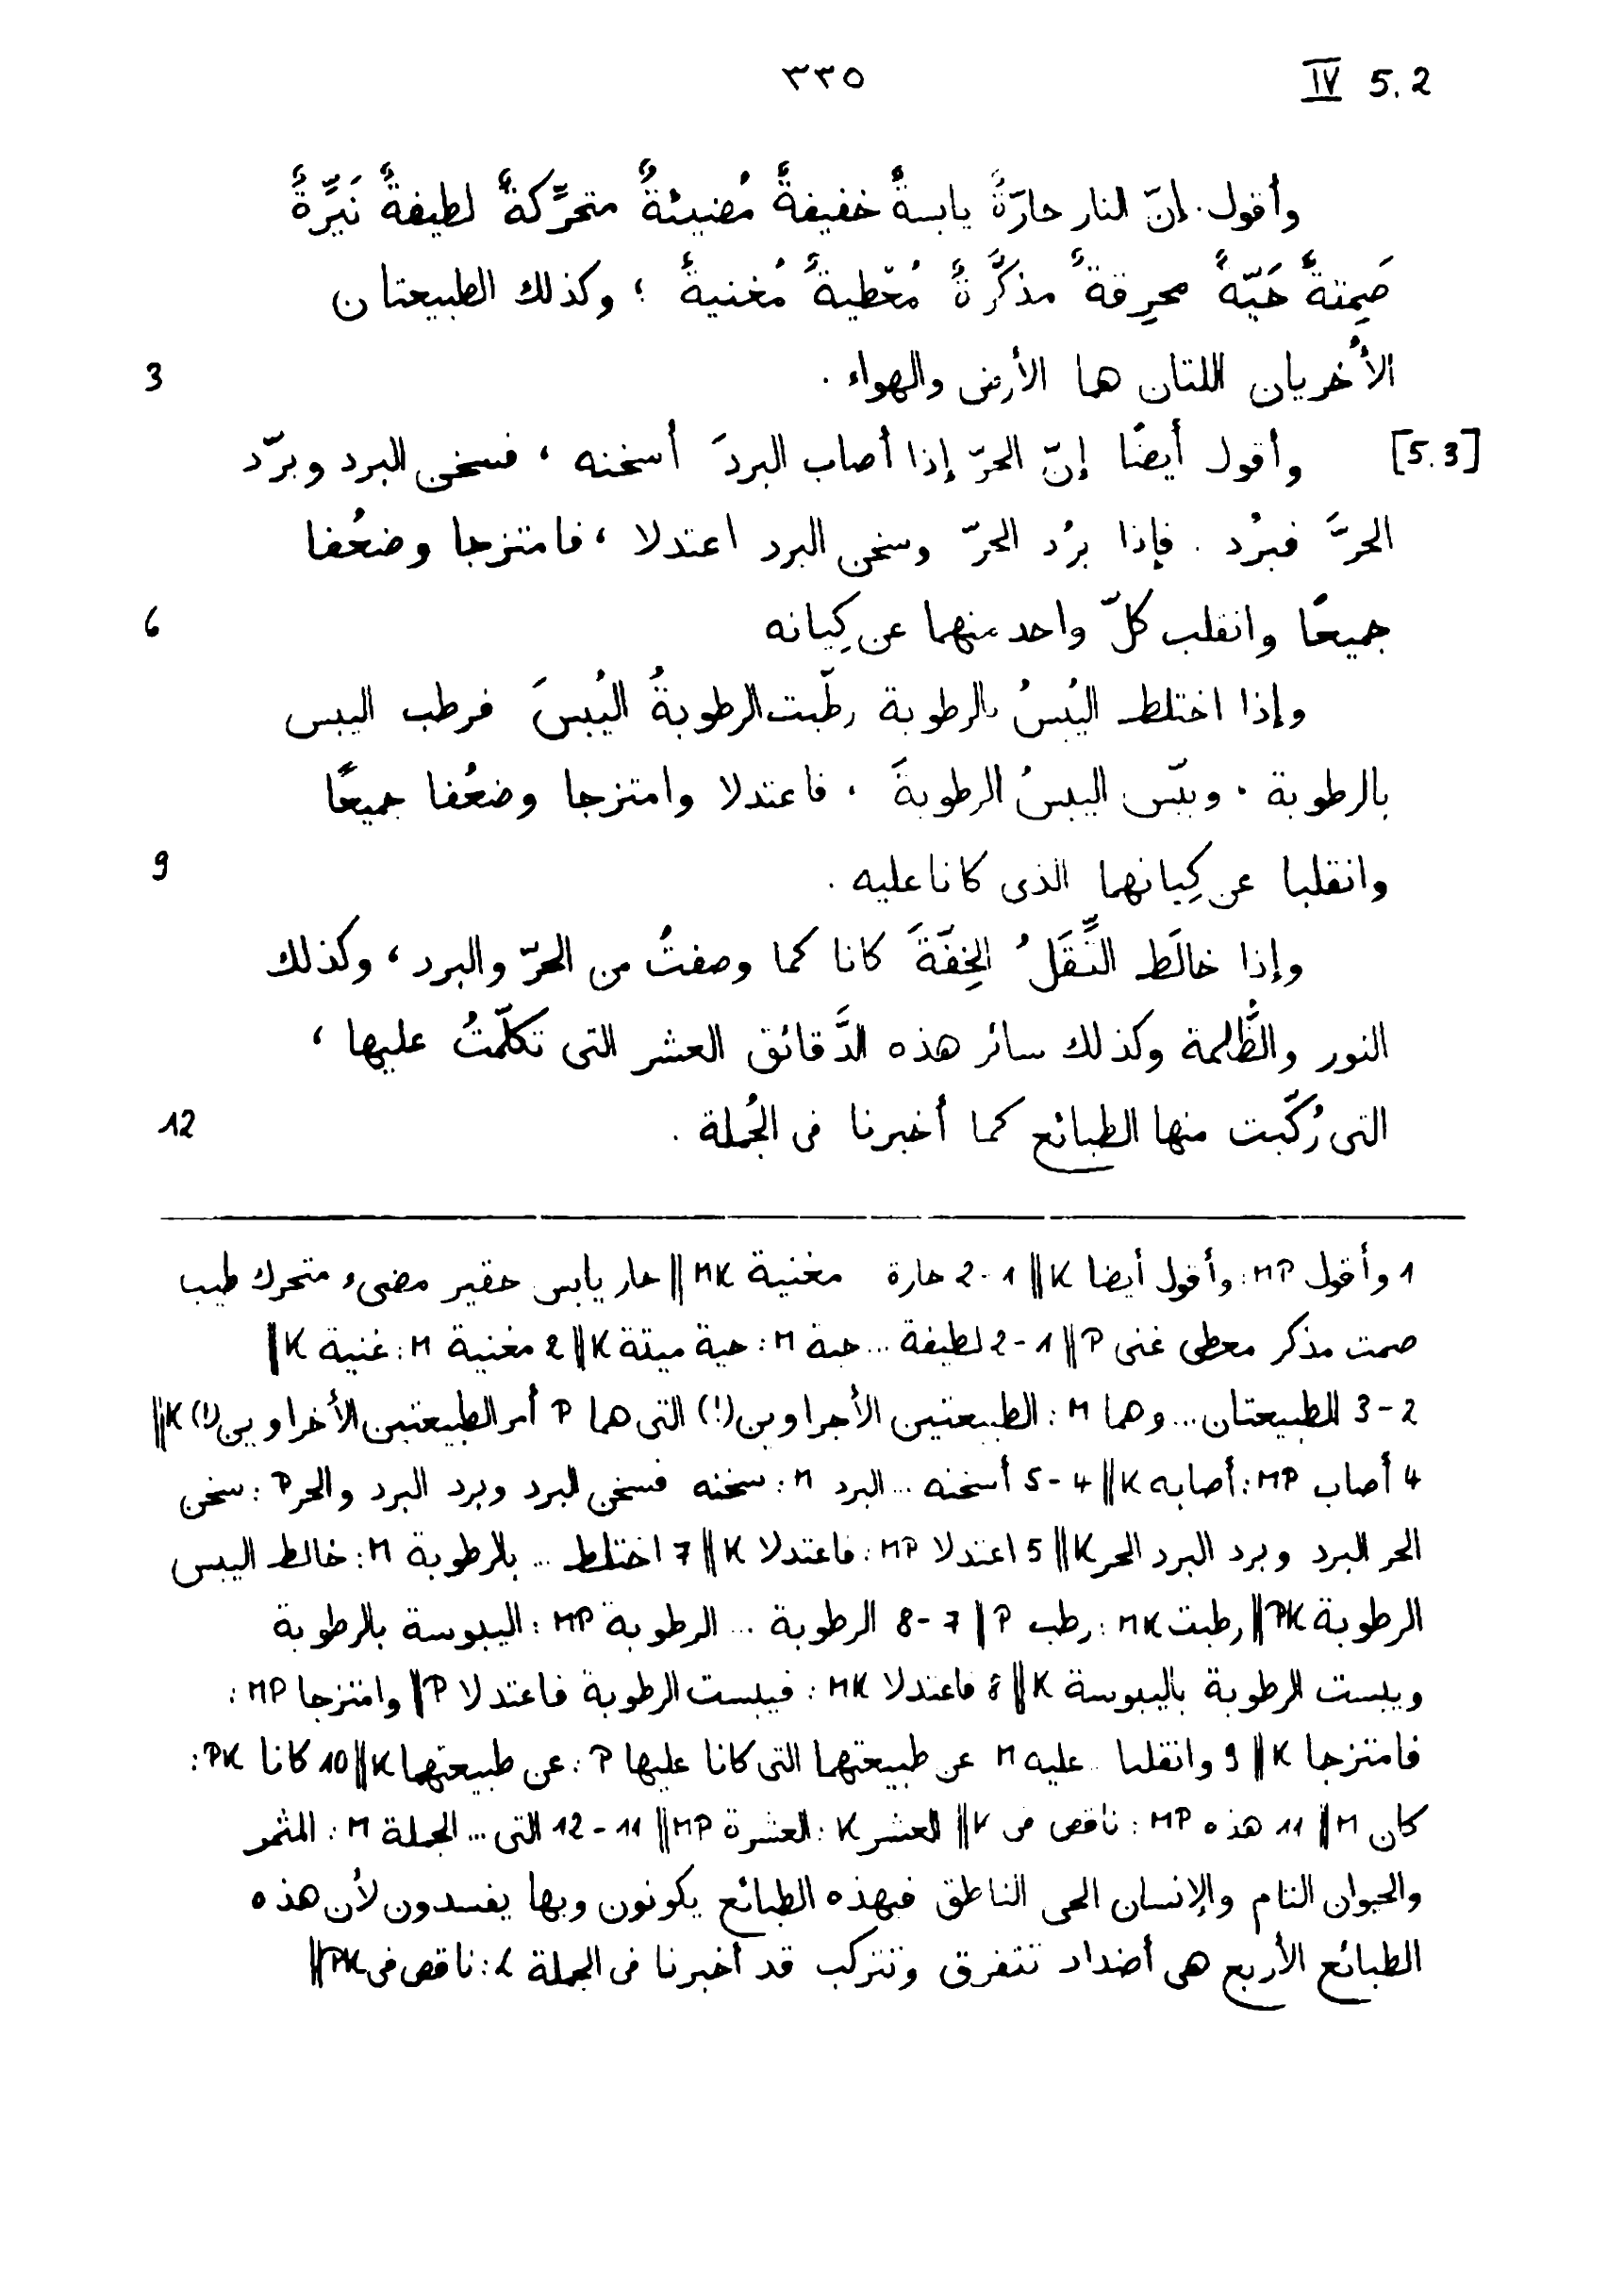 ٣٣٥ IV 5.2
وأقول. إنّ النار حارّةٌ يابسةٌ خفيفةٌ مُضيئةٌ متحرِّكةٌ لطيفةٌ نَيِّرةٌ
صَمِتةٌ حَيّةٌ محرِقةٌ مذكَّرةٌ مُعْطِيةٌ مُغنيةٌ ؛ وكذلك الطبيعتان
3 الأُخريان اللتان هما الأرض والهواء .
[5.3] وأقول أيضًا إنّ الحرّ إذا أصاب البردَ أسخنه ، فسخن البرد وبرّد
الحرَّ فبرُد . فإذا برُد الحرّ وسخن البرد اعتدلا ، فامتزجا وضعُفا
6 جميعًا وانقلب كلّ واحد منهما عن كِيانه
وإذا اختلط اليُبسُ بالرطوبة رطّبت الرطوبةُ اليُبسَ فرطب اليبس
بالرطوبة . ويبّس اليبسُ الرطوبةَ ، فاعتدلا وامتزجا وضعُفا جميعًا
9 وانقلبا عن كِيانهما الذى كانا عليه .
وإذا خالَط الثِّقَلُ الخِفّةَ كانا كما وصفتُ من الحرّ والبرد ، وكذلك
النور والظُّلمة وكذلك سائر هذه الدَّقائق العشر التى تكلّمتُ عليها ،
12 التى رُكّبت منها الطبائع كما أخبرنا فى الجُملة .
1 وأقول MP: وأقول أيضا K ‖ 1-2 حارة مغنية MK ‖ حار يابس حقير مضىء متحرك طيب
صمت مذكر معطى غنى P ‖ 1-2 لطيفة ... حية M: حية ميتة K ‖ 2 مغنية M: غنية K ‖
2-3 الطبيعتان ... وهما M: الطبيعتين الأجراوين (!) التى هما P أمر الطبيعتين الأخراوين (!) K ‖
4 أصاب MP: أصابه K ‖ 4-5 أسخنه ... البرد M: سخنه فسخن البرد وبرد البرد والحر P: سخن
الحر البرد وبرد البرد الحر K ‖ 5 اعتدلا MP: فاعتدلا K ‖ 7 اختلط ... بالرطوبة M: خالط اليبس
الرطوبة PK ‖ رطبت MK: رطب P ‖ 7-8 الرطوبة ... الرطوبة MP: اليبوسة بالرطوبة
ويبست الرطوبة باليبوسة K ‖ 8 فاعتدلا MK: فيبست الرطوبة فاعتدلا P ‖ وامتزجا MP:
فامتزجا K ‖ 9 وانقلبا .. عليه M عن طبيعتهما التى كانا عليها P: عن طبيعتهما K ‖ 10 كانا PK:
كان M ‖ 11 هذه MP: ناقص فى K ‖ العشر K: العشرة MP ‖ 11-12 التى ... الجملة M: المثمر
والحيوان التام والإنسان الحى الناطق فبهذه الطبائع يكونون وبها يفسدون لأن هذه
الطبائع الأربع هى أضداد تتفرق وتتركب قد أخبرنا فى الجملة L: ناقص فى PK ‖